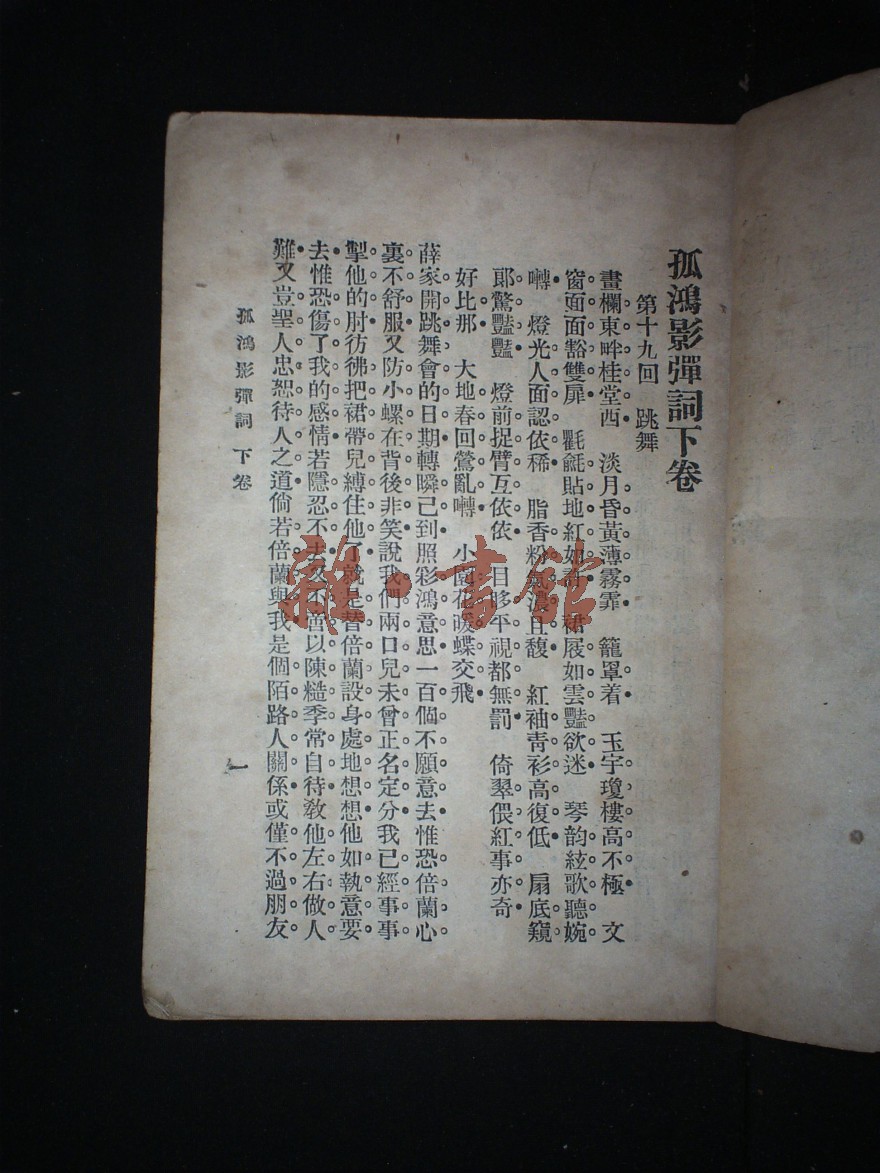 孤鴻影彈詞下卷
第十九回　跳舞
畫欄東畔桂堂西　淡月昏黃薄霧霏　籠罩着　玉宇瓊樓高不極　文
窗面面豁雙扉　氍毹貼地紅如　裙屐如雲豔欲迷　琴韵絃歌聽婉
囀　燈光人面認依稀　脂香粉氣濃且馥　紅袖青衫高復低　扇底窺
郞驚豔豔　燈前捉臂互依依　目眵平視都無罰　倚翠偎紅事亦奇
好比那　大地春回鶯亂囀　小園花暖蝶交飛
薛家開跳舞會的日期轉瞬已到照彩鴻意思一百個不願意去惟恐倍蘭心
裏不舒服又防小螺在背後非笑說我們兩口兒未曾正名定分我已經事事
掣他的肘彷彿把裙帶兒縛住他了就是替倍蘭設身處地想想他如執意要
去惟恐傷了我的感情若隱忍不去又不啻以陳糙季常自待敎他左右做人
難又豈聖人忠恕待人之道倘若倍蘭與我是個陌路人關係或僅不過朋友
孤鴻影彈詞　下卷
一
雜·書館